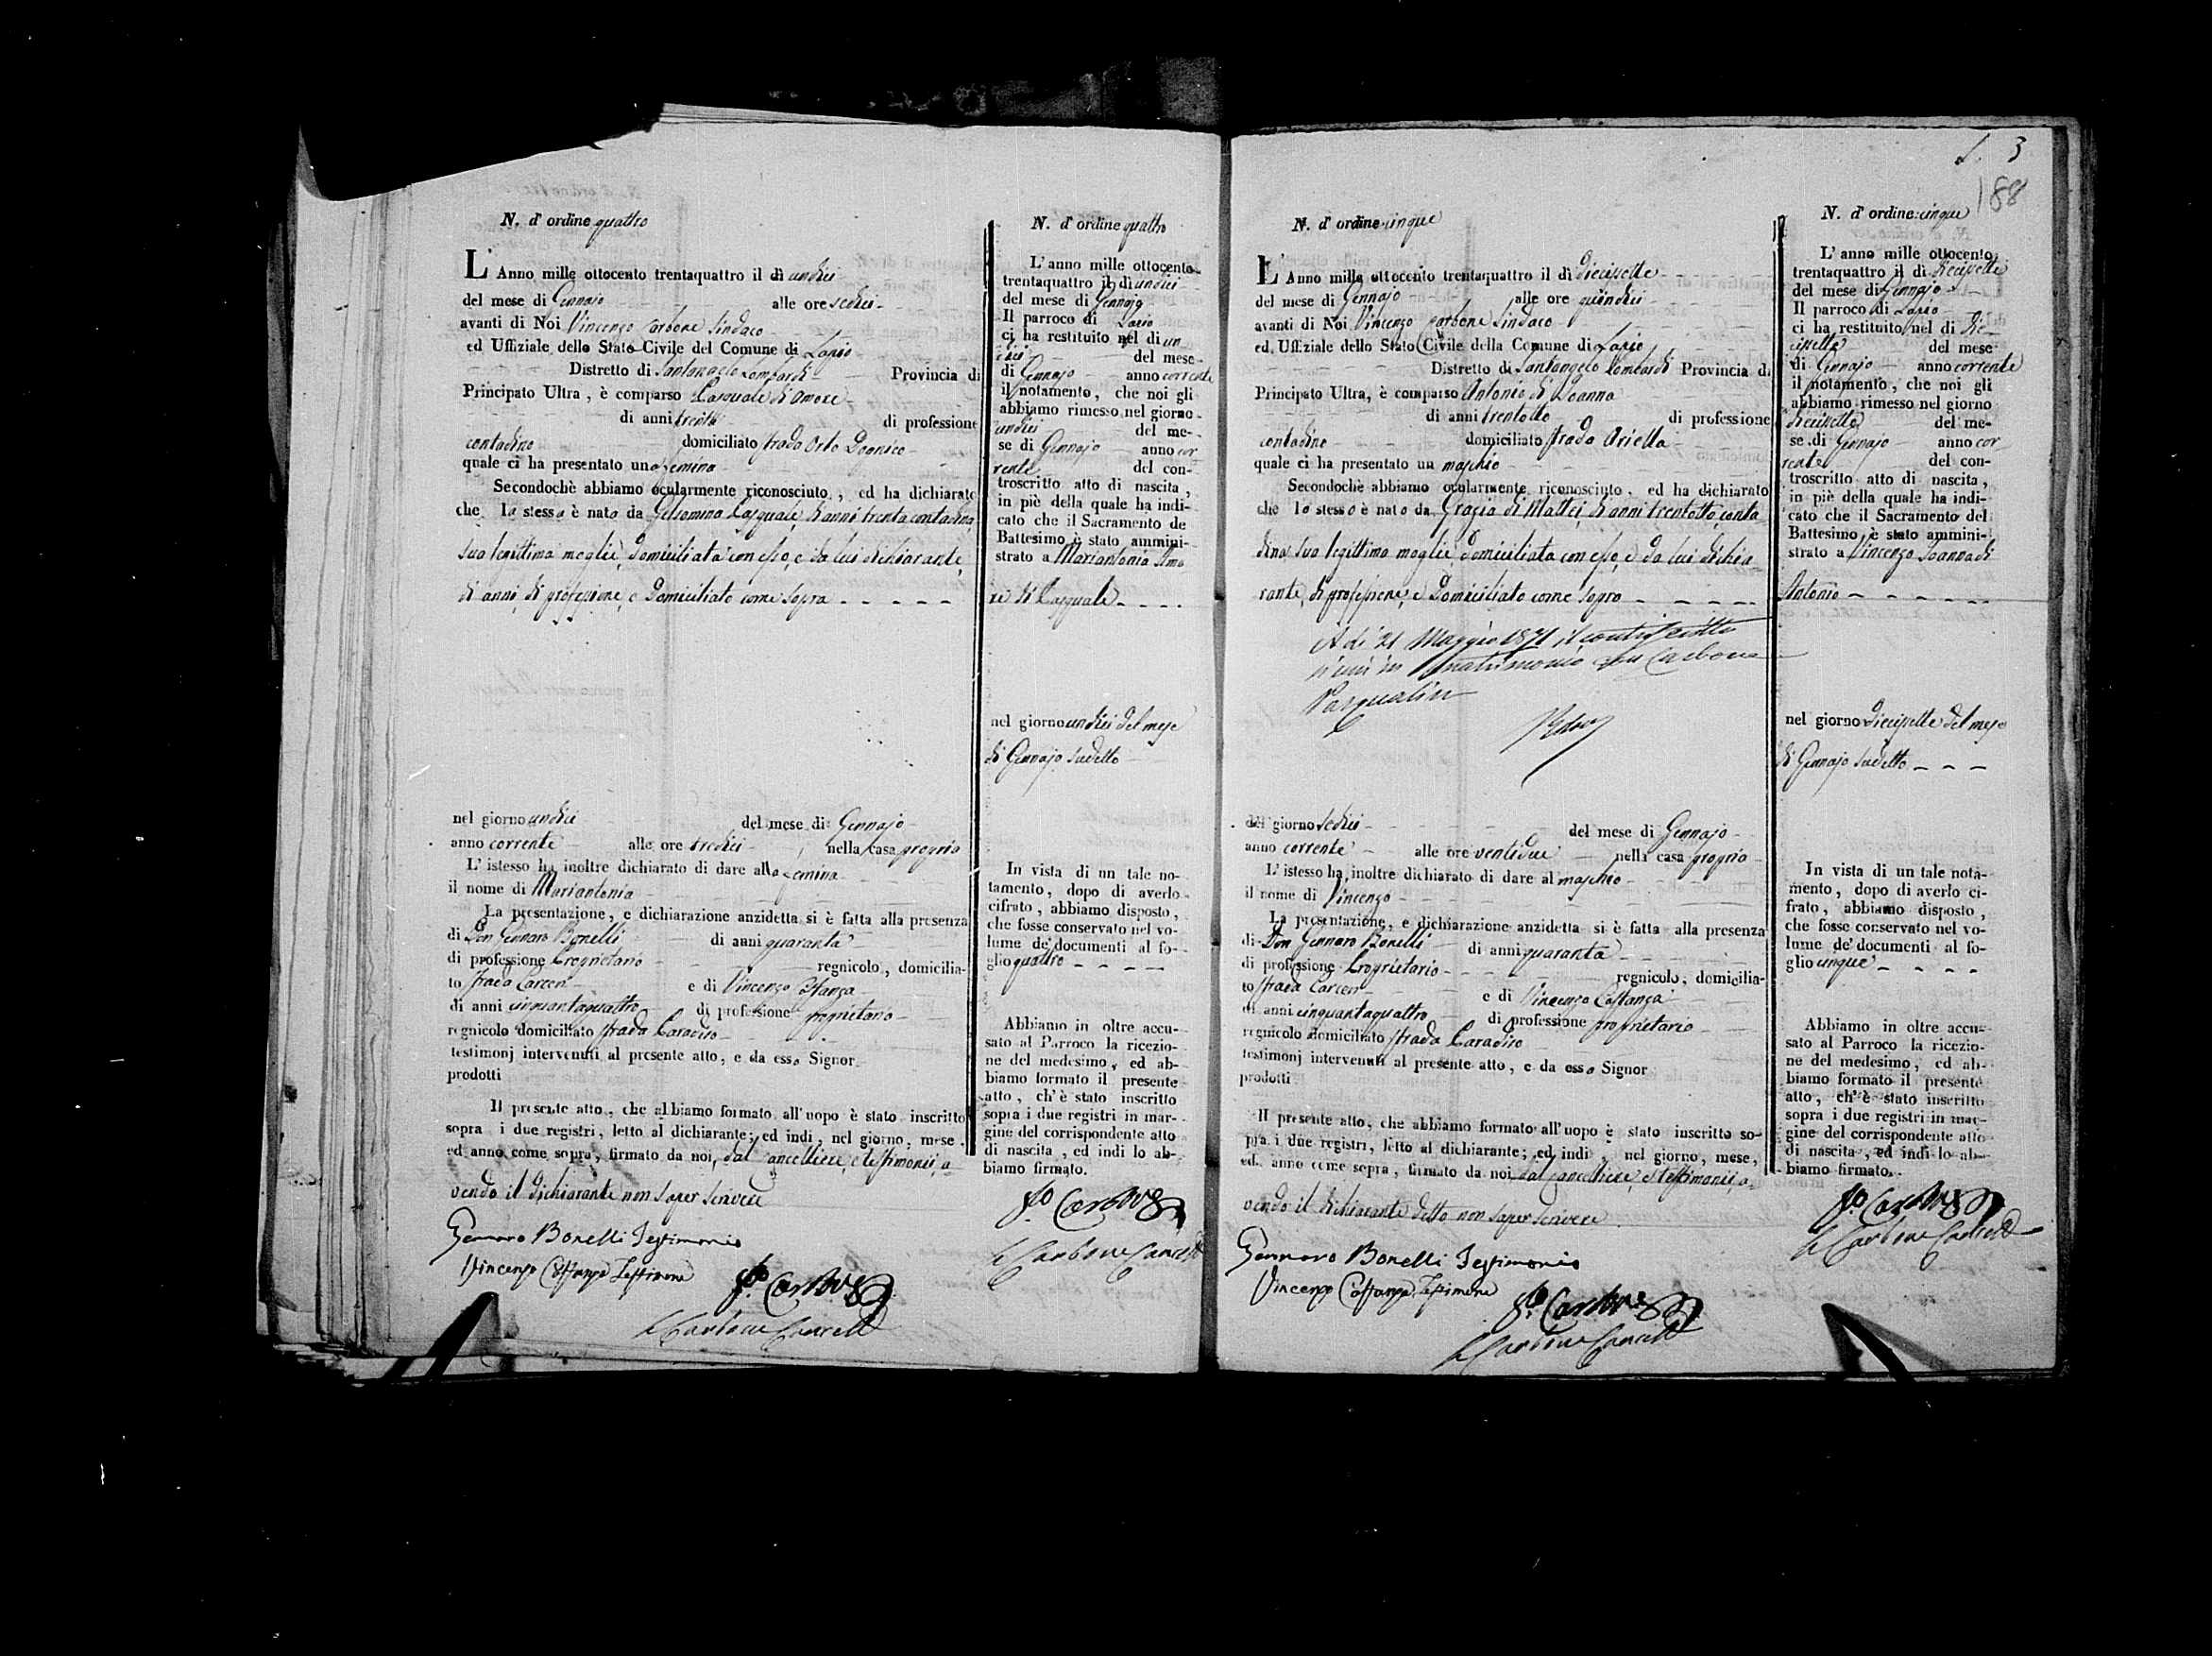 N. d' ordine quattro
L' Anno mille ottocento trentaquattro il dì undici
del mese di Gennajo alle ore sedici
avanti di Noi Vincenzo Carbone Sindaco
ed Uffiziale dello Stato Civile del Comune di Lapio
Distretto di Santangelo Lombardi Provincia di
Principato Ultra, è comparso Pasquale di Amore
di anni trenta di professione
contadino domiciliato strada Orto Doanico
quale ci ha presentato una femina
Secondochè abbiamo ocularmente riconosciuto, ed ha dichiarato
che la stessa è nata da Gelsomina Pasquale di anni trenta contadina,
sua legittima moglie, domiciliata con esso, e da lui dichiarante,
di anni, di professione, e domiciliato come sopra
nel giorno undici del mese di Gennajo
anno corrente alle ore tredici nella casa propria
L' istesso ha inoltre dichiarato di dare alla femina
il nome di Mariantonia
La presentazione, e dichiarazione anzidetta si è fatta alla presenza
di Don Gennaro Bonelli di anni quaranta
di professione Proprietario regnicolo, domicilia-
to strada Carceri e di Vincenzo Costanza
di anni cinquantaquattro di professione proprietario
regnicolo domiciliato strada Paradiso
testimonj intervenuti al presente atto, e da esso Signor
prodotti
Il presente atto, che abbiamo formato all'uopo è stato inscritto
sopra i due registri, letto al dichiarante; ed indi, nel giorno, mese,
ed anno come sopra, firmato da noi, dal Cancelliere, e testimonii, a-
vendo il dichiarante non saper scrivere
Gennaro Bonelli Testimonio
Vincenzo Costanza Testimone
Carbone
Carbone Cancell
N. d' ordine quattro
L' anno mille ottocento
trentaquattro il dì undici
del mese di Gennajo
Il parroco di Lapio
ci ha restituito nel dì un
dici del mese
di Gennajo anno corrente
il notamento, che noi gli
abbiamo rimesso nel giorno
undici del me-
se di Gennajo anno cor
rente del con-
troscritto atto di nascita,
in piè della quale ha indi-
cato che il Sacramento de
Battesimo è stato ammini-
strato a Mariantonia Amo
re di Pasquale
nel giorno undici del mese
di Gennajo sudetto
In vista di un tale no-
tamento, dopo di averlo
cifrato, abbiamo disposto,
che fosse conservato nel vo-
lume de' documenti al fo-
glio quattro
Abbiamo in oltre accu-
sato al Parroco la ricezio-
ne del medesimo, ed ab-
biamo formato il presente
atto, ch'è stato inscritto
sopra i due registri in mar-
gine del corrispondente atto
di nascita, ed indi lo ab-
biamo firmato.
Carbone
Carbone Cancell
3
188
N. d' ordine cinque
L' Anno mille ottocento trentaquattro il dì diecisette
del mese di Gennajo alle ore quindici
avanti di Noi Vincenzo Carbone Sindaco
ed Uffiziale dello Stato Civile della Comune di Lapio
Distretto di Santangelo Lombardi Provincia di
Principato Ultra, è comparso Antonio di Joanna
di anni trentotto di professione
contadino domiciliato strada Ariella
quale ci ha presentato un maschio
Secondochè abbiamo ocularmente riconosciuto, ed ha dichiarato
che lo stesso è nato da Grazia di Mattei, di anni trentotto, conta
dina, sua legittima moglie, domiciliata con esso, e da lui dichia-
rante, di professione, e domiciliato come sopra
A dì 21 Maggio 1871 il controscritto
si unì in matrimonio con Carbone
Pasqualin
del giorno sedici del mese di Gennajo
anno corrente alle ore ventidue nella casa propria
L' istesso ha inoltre dichiarato di dare al maschio
il nome di Vincenzo
La presentazione, e dichiarazione anzidetta si è fatta alla presenza
di Don Gennaro Bonelli di anni quaranta
di professione Proprietario regnicolo, domicilia-
to strada Carceri e di Vincenzo Costanza
di anni cinquantaquattro di professione proprietario
regnicolo domiciliato strada Paradiso
testimonj intervenuti al presente atto, e da esso Signor
prodotti
Il presente atto, che abbiamo formato all'uopo è stato inscritto so-
pra i due registri, letto al dichiarante; ed indi, nel giorno, mese,
ed anno come sopra, firmato da noi, dal Cancelliere, e testimonii, a-
vendo il dichiarante detto non saper scrivere
Gennaro Bonelli Testimonio
Vincenzo Costanza Testimone
Carbone
Carbone Cancell
N. d' ordine cinque
L' anno mille ottocento
trentaquattro il dì diecisette
del mese di Gennajo
Il parroco di Lapio
ci ha restituito nel dì die-
cisette del mese
di Gennajo anno corrente
il notamento, che noi gli
abbiamo rimesso nel giorno
diecisette del me-
se di Gennajo anno cor
rente del con-
troscritto atto di nascita,
in piè della quale ha indi-
cato che il Sacramento del
Battesimo è stato ammini-
strato a Vincenzo Joanna di
Antonio
nel giorno diecisette del mese
di Gennajo sudetto
In vista di un tale nota-
mento, dopo di averlo ci-
frato, abbiamo disposto,
che fosse conservato nel vo-
lume de' documenti al fo-
glio cinque
Abbiamo in oltre accu-
sato al Parroco la ricezio-
ne del medesimo, ed ab-
biamo formato il presente
atto, ch'è stato inscritto
sopra i due registri in mar-
gine del corrispondente atto
di nascita, ed indi lo ab-
biamo firmato.
Carbone
Carbone Cancell